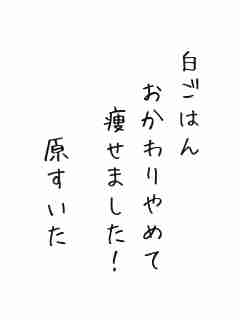 白ごはん
おかわりやめて
痩せました！
原すいた